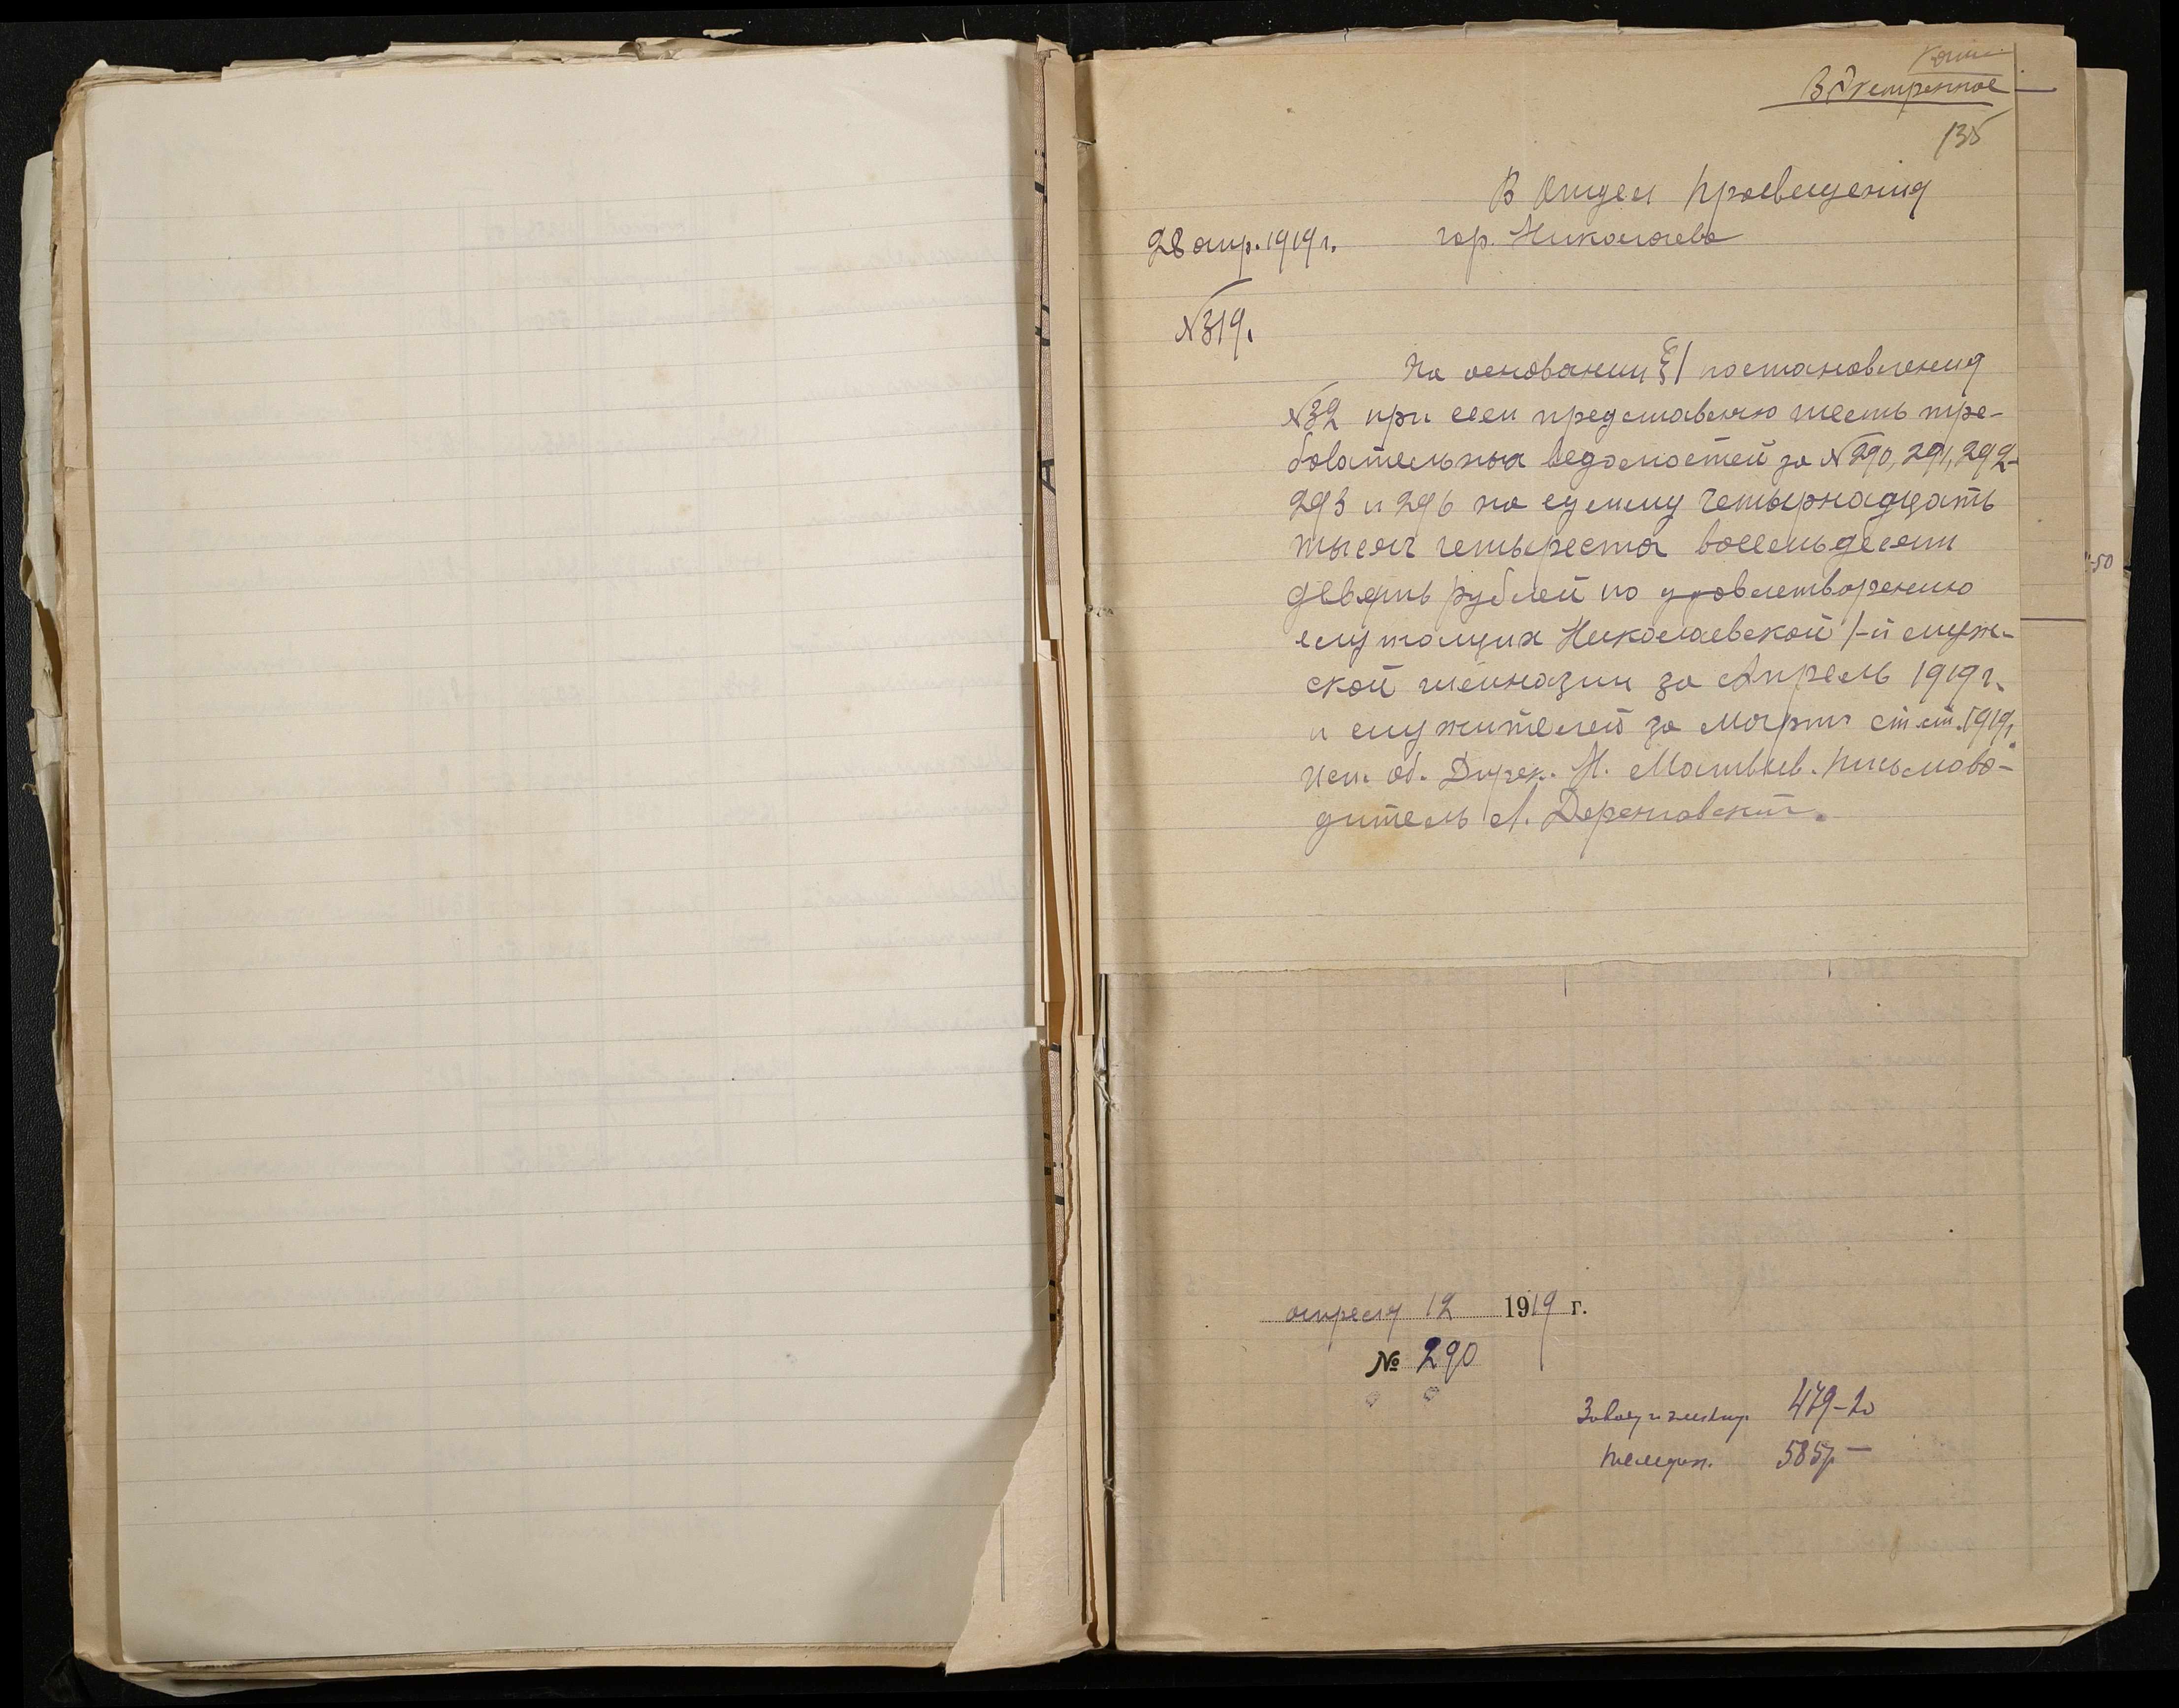 Копия.
Экстренное
135
В Отдел Просвещения
28 апр. 1919 г.
гор. Николаева
№319.
На основании §1 постановления
№32 при сем представляю шесть тре-
бовательных ведомостей за №290, 291, 292-
293 и 296 на сумму четырнадцать
тысяч четыреста восемьдесят
девять рублей по удовлетворению
служащих Николаевской 1-й муж-
ской гимназии за Апрель 1919 г.
и служителей за Март ст. ст. 1919 г.
Исп. об. Дирек. Н. Матвеев. Письмово-
дитель А.
-50
апреля 12 1919 г.
№ 290
479-20
585р —